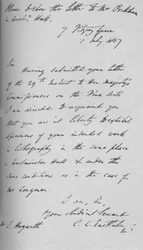 this letter to Mr
Hall.
7
July 1847
Sir
Having submitted your letter
of the 29th Instant to Her Majesty's
Commissioners on the Fine Arts
I am directed to acquaint you
that you are at liberty to exhibit
specimens of your intended work
in Lithography in the same place
in Westminster Hall & under the
same conditions as in the case of
Mr Longman.
I am, Sir,
Your obedient Servant
C. L. Eastlake
Mr Hogarth